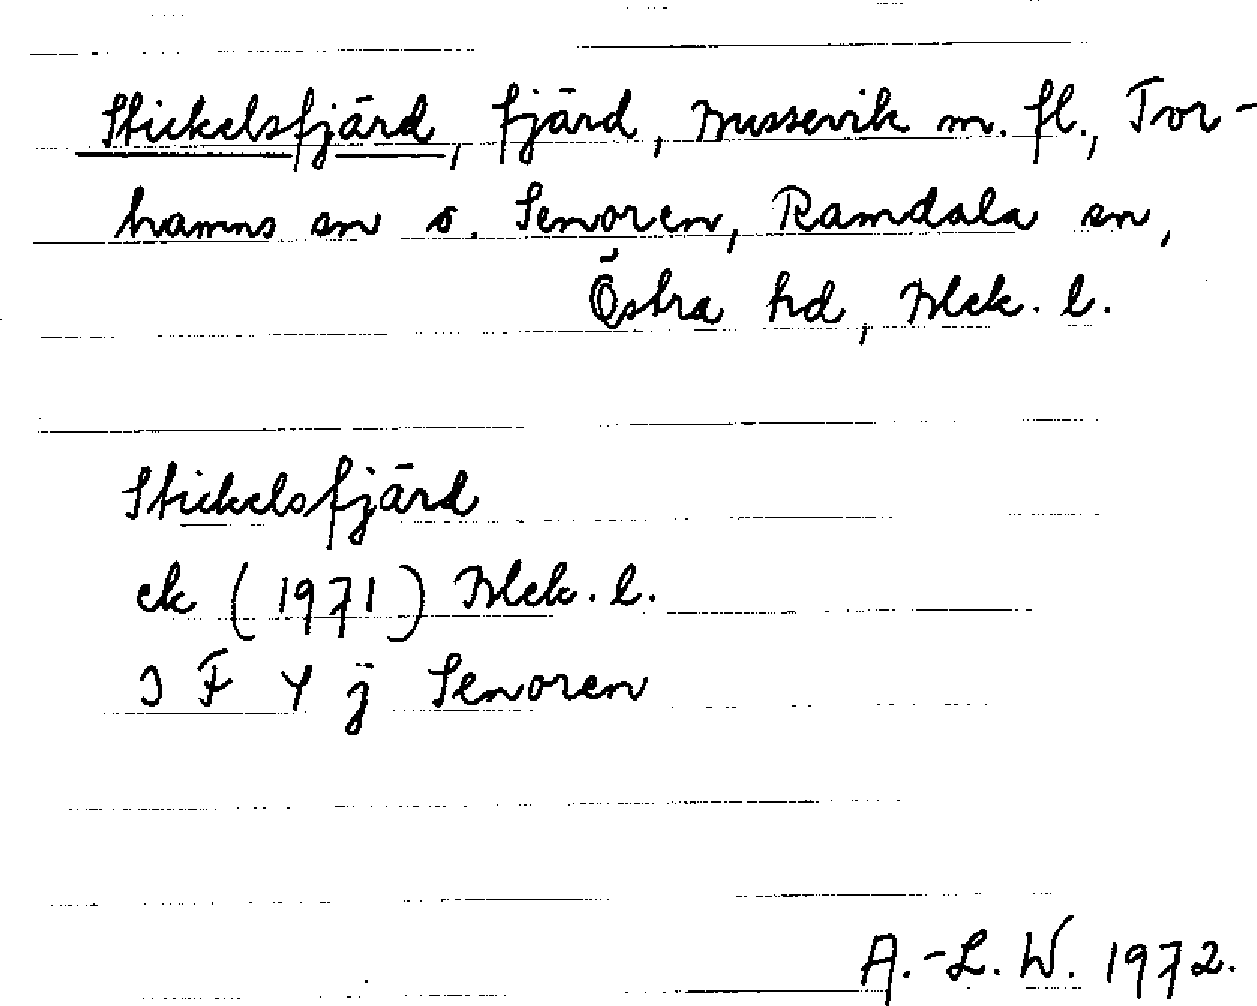 Stickelsfjärd, fjärd, Bussevik m. fl., Tor-
hamns sn o. Senoren, Ramdala sn,
Östra hd, Blek. l.
Stickelsfjärd
ek (1971) Blek. l.
3 F 4 j Senoren
A.-L. W. 1972.